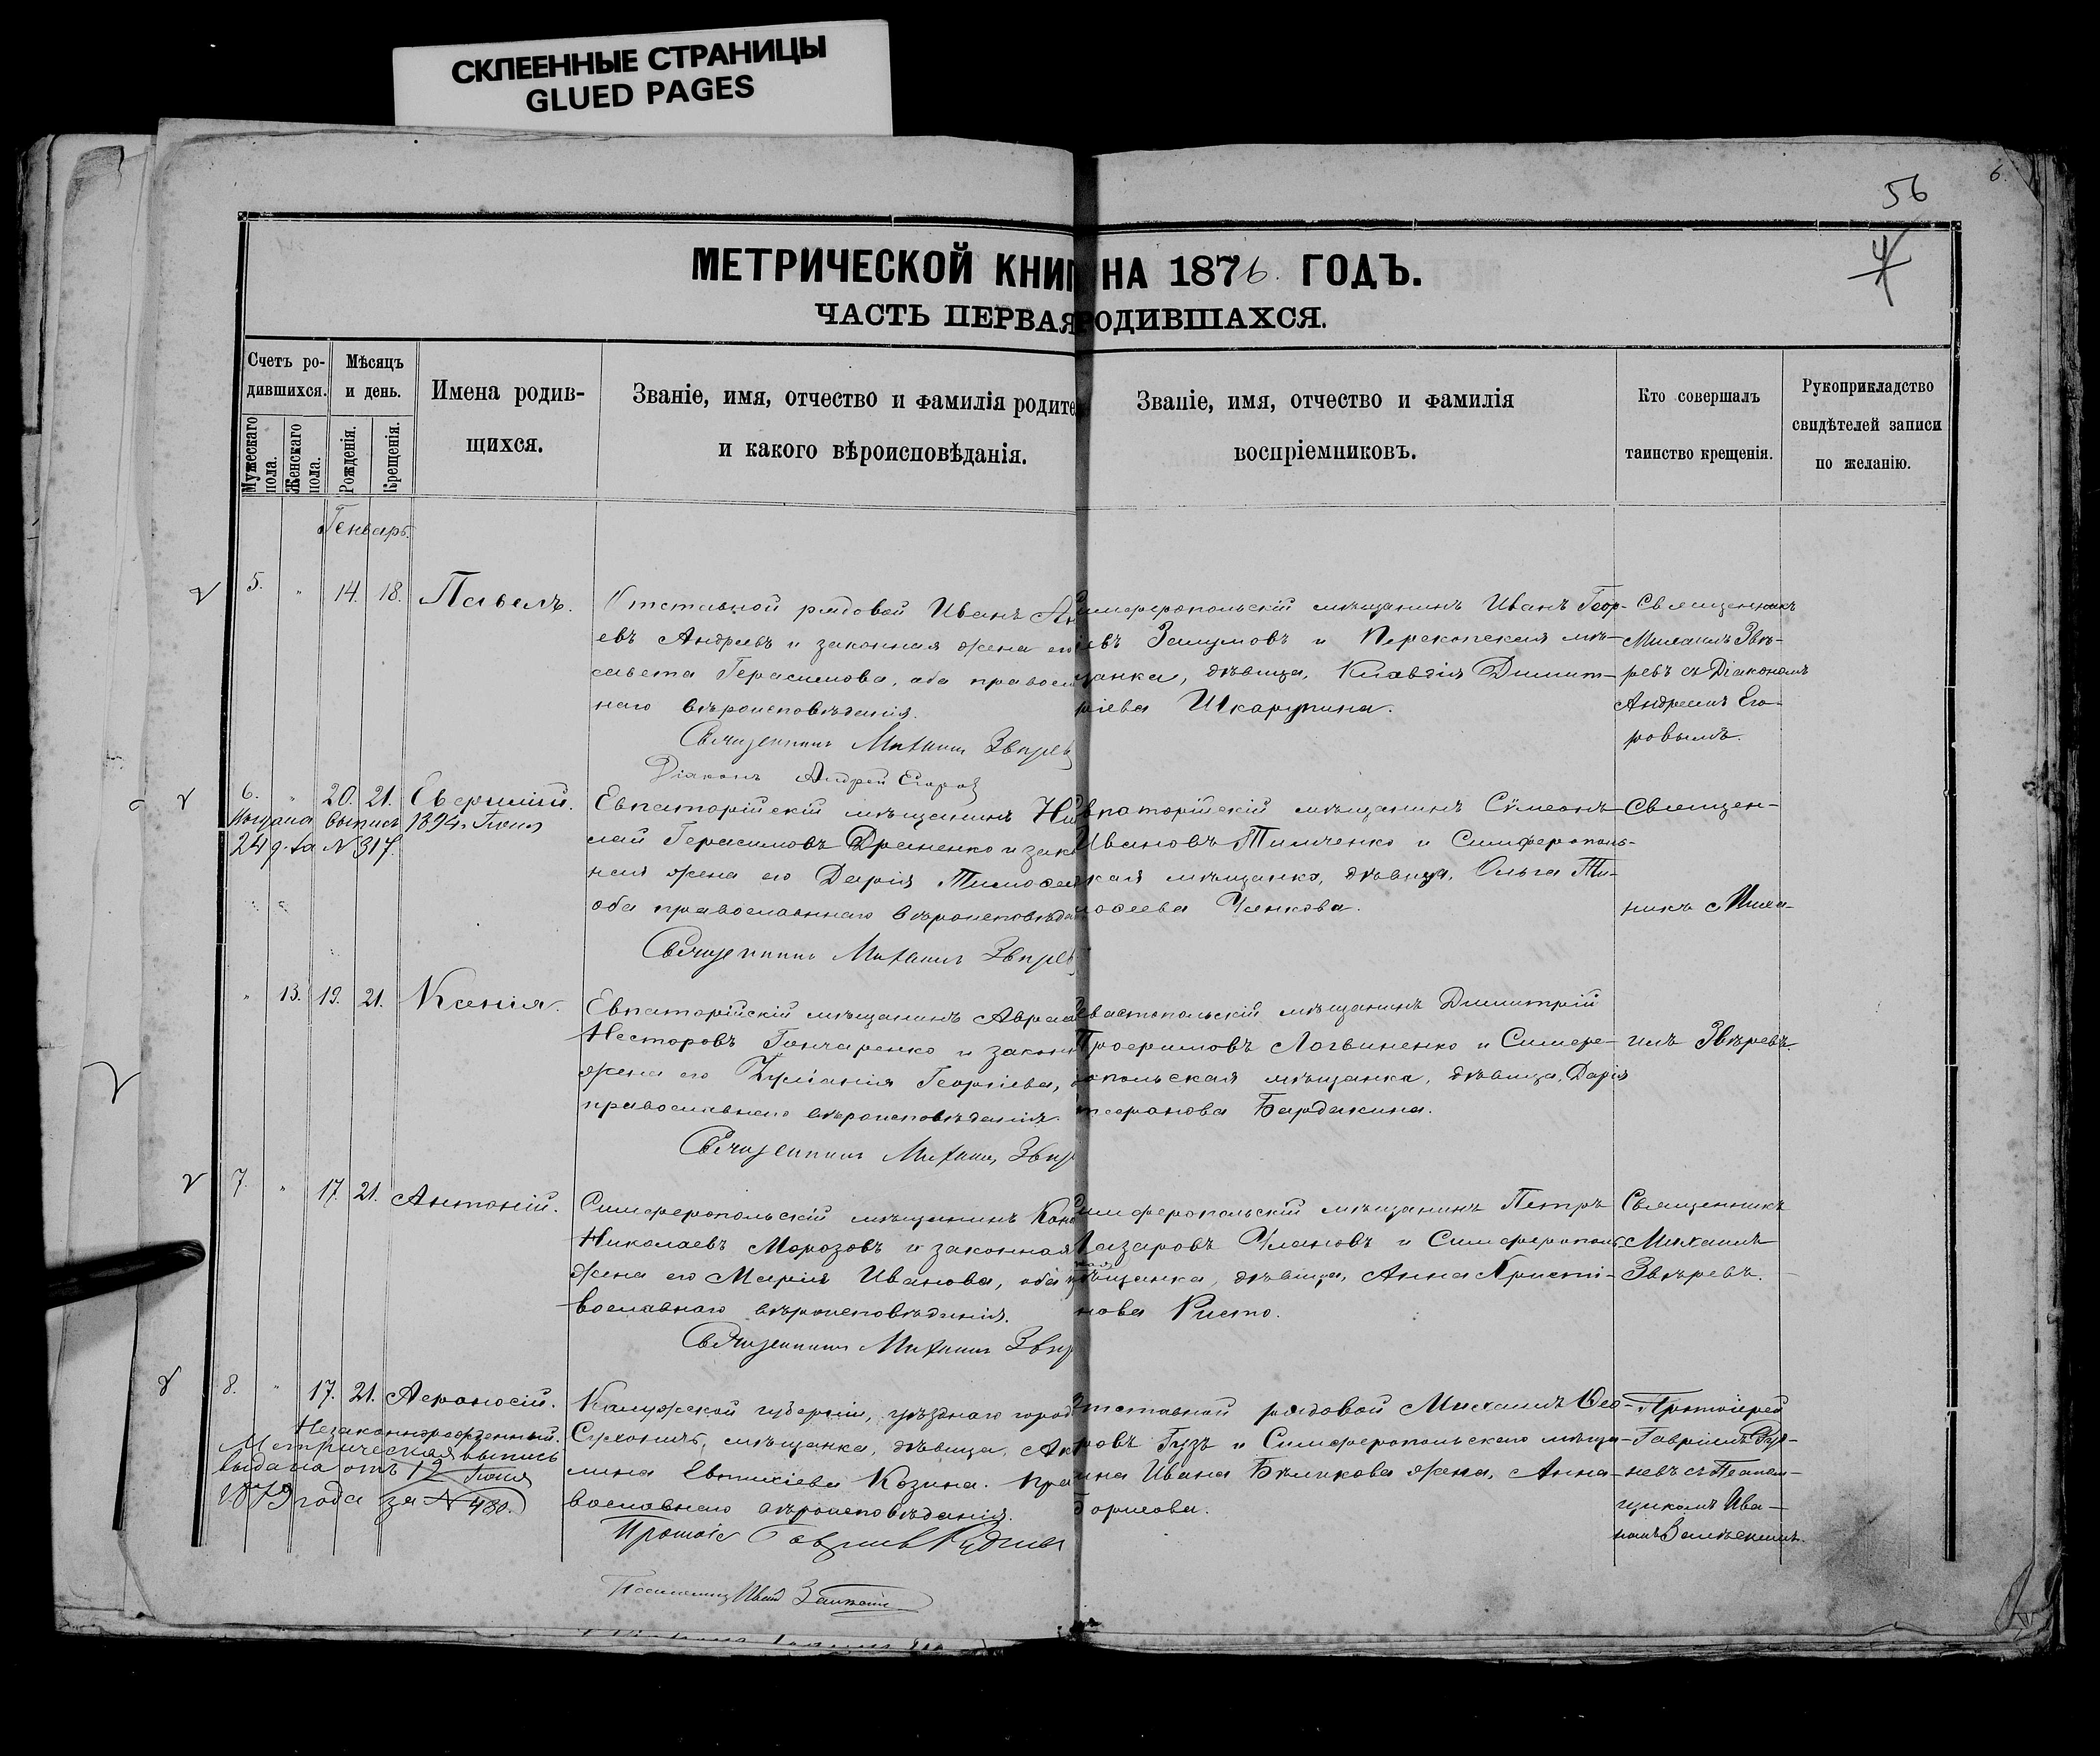 СКЛЕЕННЫЕ СТРАНИЦЫ
GLUED PAGES
6.
56
4
МЕТРИЧЕСКОЙ КНИГ НА 1876. ГОДЪ.
ЧАСТЬ ПЕРВАЯ РОДИВШАХСЯ.
Счетъ ро-
дившихся.
Мужескаго пола.
Женскаго пола.
Мѣсяцъ
и день.
Рожденія.
Крещенія.
Имена родив-
щихся.
Званіе, имя, отчество и фамилія родите
и какого вѣроисповѣданія.
Званіе, имя, отчество и фамилія
воспріемниковъ.
Кто совершалъ
таинство крещенія.
Рукоприкладство
свидѣтелей записи
по желанію.
Генварь.
5. " 14. 18. Павелъ.
Отставной рядовой Иванъ Ан
евъ Андреевъ и законная жена его
савета Герасимова, оба правосл
наго вѣроисповѣданія.
Священникъ Михаилъ Звѣрев
Діаконъ Андрей Егоров
Симферопольскій мѣщанинъ Иванъ Геор-
іевъ и Перекопская мѣ-
щанка, дѣвица, Клавдія Димит-
ріева Шкарупина.
Священникъ
Михаилъ Звѣ-
ревъ съ Діакономъ
Андреемъ Его-
ровымъ.
6. " 20. 21. Евфимій.
Выдана выпись 1894 г. Іюня
24 д. за № 317.
Евпаторійскій мѣщанинъ Ни
лай Герасимовъ Драненко и зако
ная жена его Дарія Тимофея
оба православнаго вѣроисповѣда
Священникъ Михаилъ Звѣрев
Евпаторійскій мѣщанинъ Сѵмеонъ
Ивановъ Тимченко и Симферополь-
ская мѣщанка, дѣвица, Ольга Ти-
мофеева Ченкова.
Священ-
никъ Миха-
" 13. 19. 21. Ксенія.
Евпаторійскій мѣщанинъ Авраа
Несторовъ Гончаренко и законн
жена его Іуліанія Георгіева,
православнаго вѣроисповѣданія.
Священникъ Михаилъ Звѣр
Севастопольскій мѣщанинъ Димитрій
Трофимовъ Логвиненко и Симфе-
ропольская мѣщанка, дѣвица, Дарія
тафонова Бардакина.
илъ Звѣревъ.
7. " 17. 21. Антоній.
Симферопольскій мѣщанинъ Кон
Николаевъ Морозовъ и законная
жена его Марія Иванова, оба п
вославнаго вѣроисповѣданія.
Священникъ Михаилъ Звѣр
Симферопольскій мѣщанинъ Петръ
Лазаровъ Улановъ и Симферополь-
мѣщанка, дѣвица, Анна Христі-
нова Ристо.
Священникъ
Михаилъ
Звѣревъ.
8. " 17. 21. Афанасій.
Незаконнорожденный.
Метрическая выпись
выдана отъ 12 Іюня
1879 года за № 480.
Калужской губерніи, уѣзднаго город
Сухиничъ, мѣщанка, дѣвица, Ак
лина Евтихіева Козина. Пра
вославнаго вѣроисповѣданія.
Протоіе Гавріилъ Рудневъ
Псаломщ Иванъ
Отставной рядовой Михаилъ Ѳео-
ровъ Гузъ и Симферопольскаго мѣща-
нина Ивана Бѣликова жена, Анна
Протоіерей
Гавріилъ Руд-
невъ съ Псалом-
щикомъ Ива-